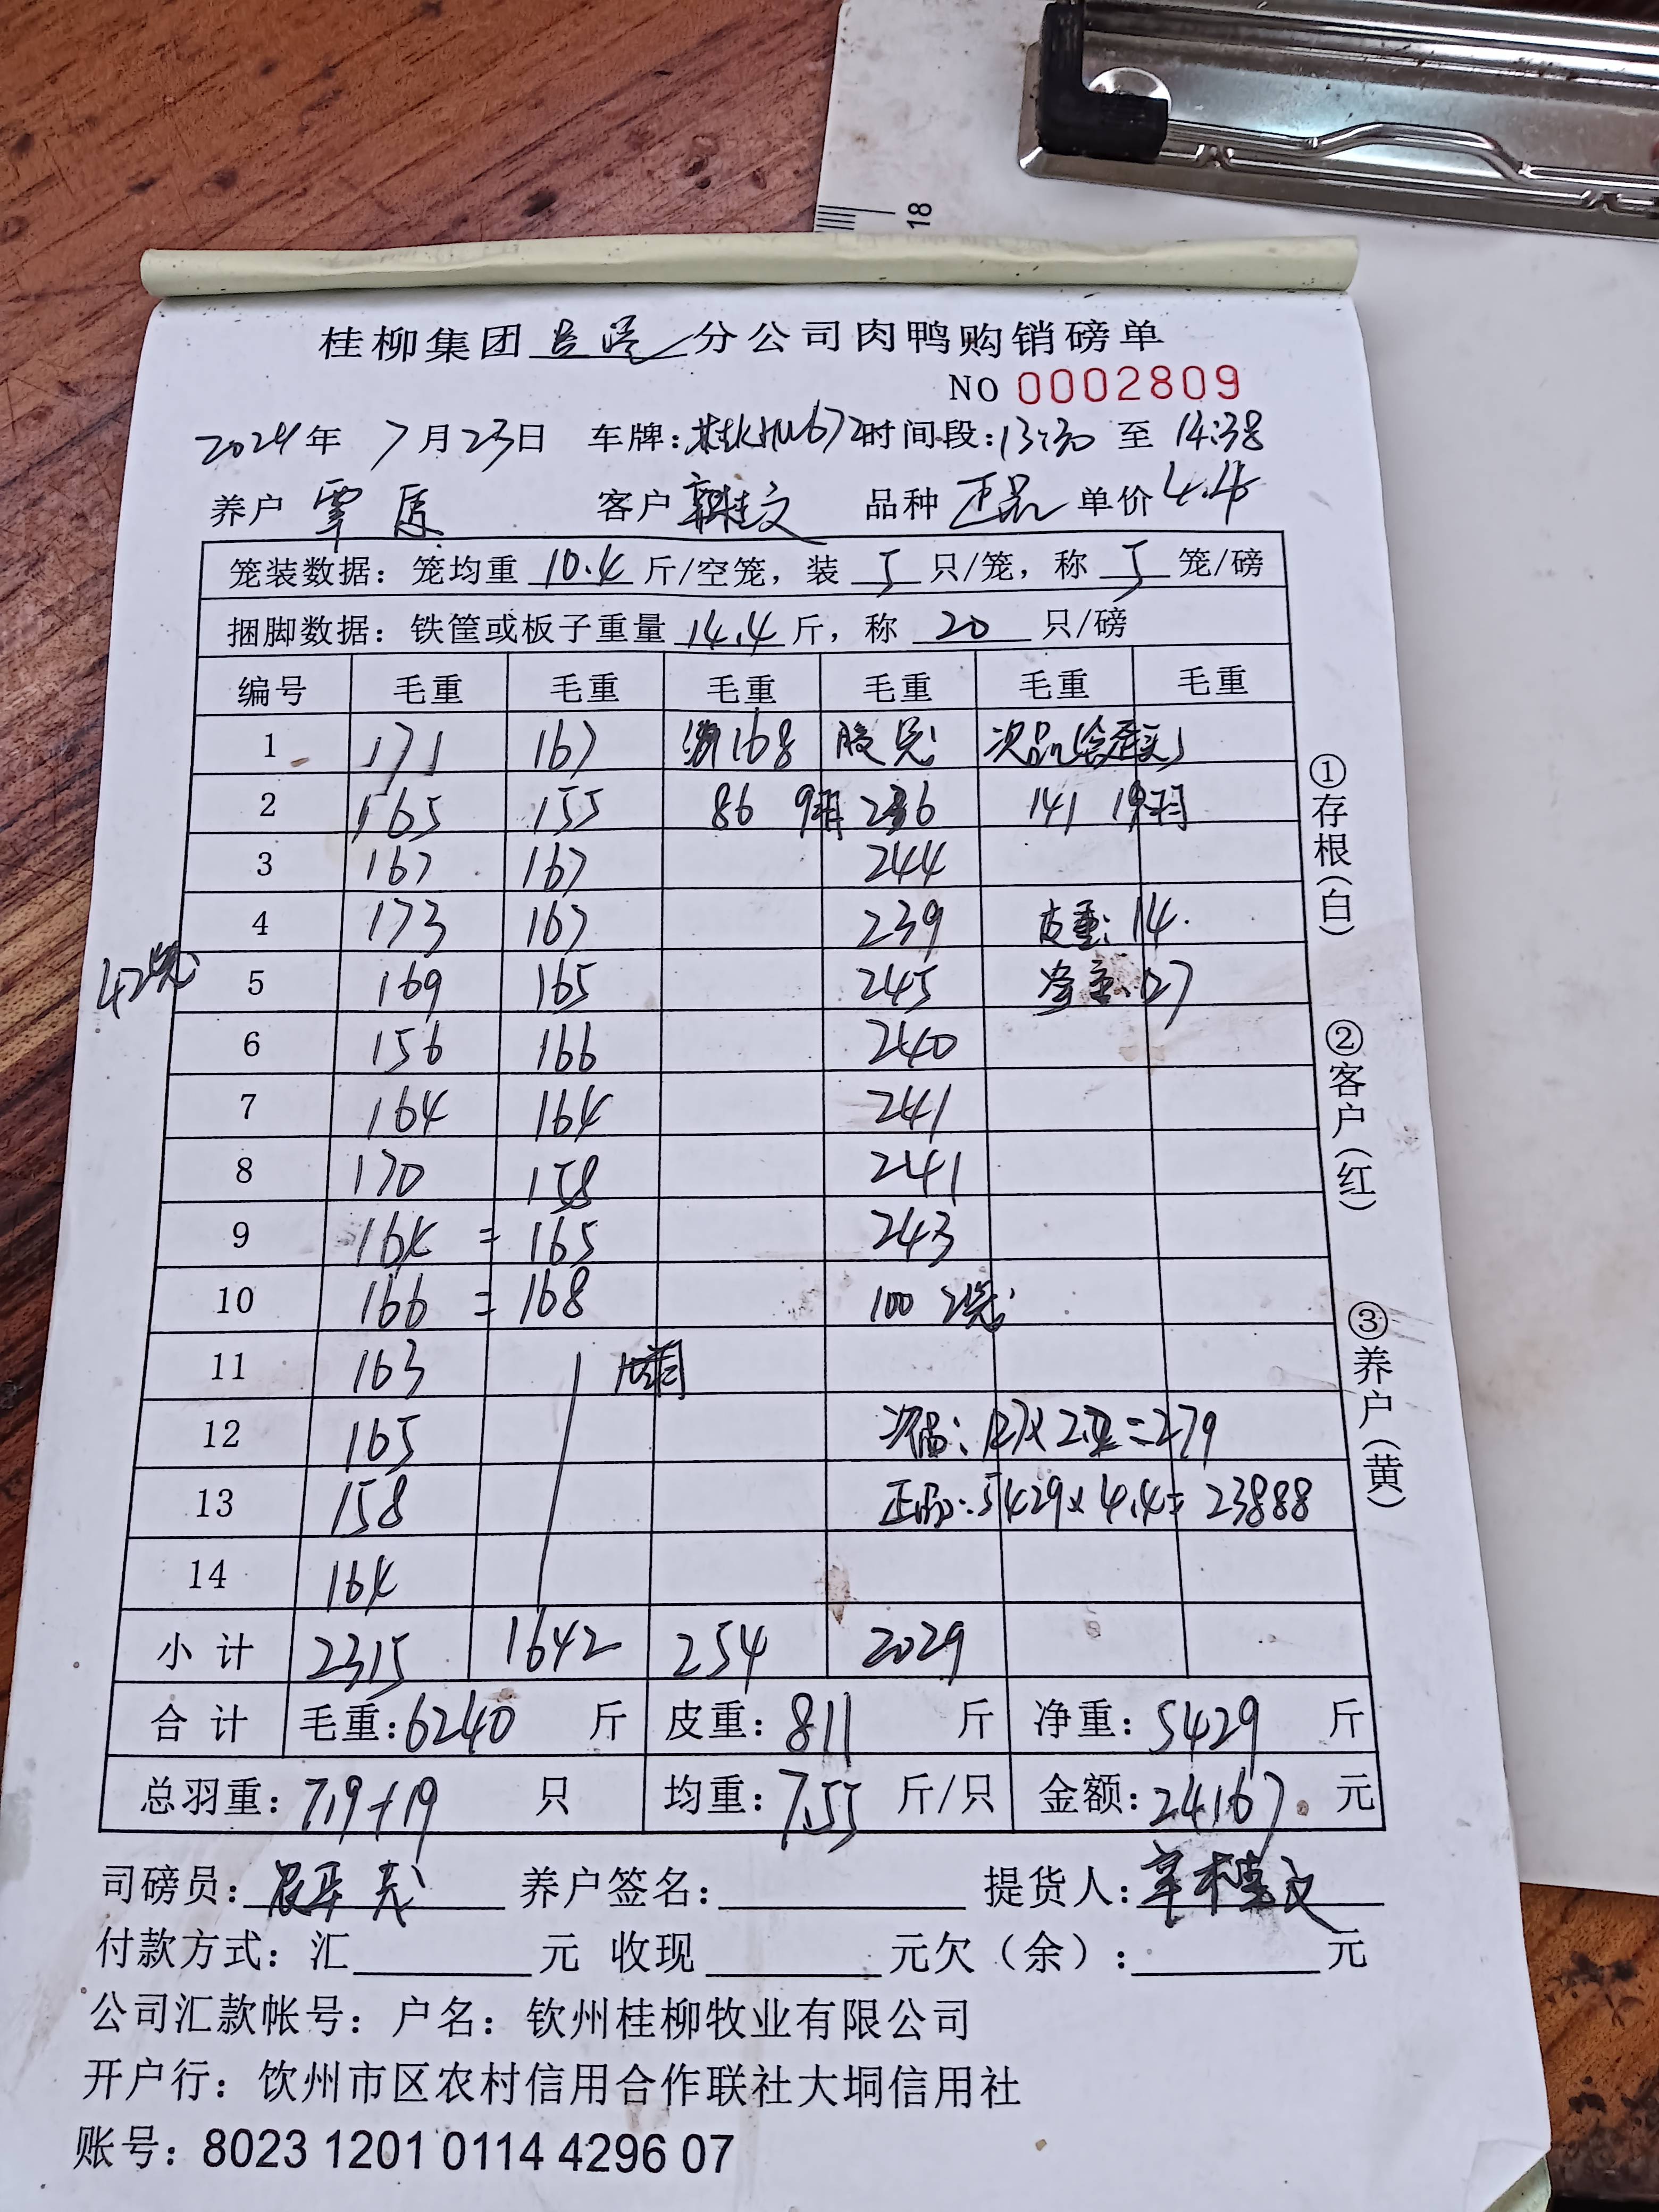 18
桂柳集团 分公司肉鸭购销磅单
NO 0002809
2024年 7月23日 车牌: 时间段:13:30 至 14:38
养户 覃 客户 品种 正品 单价 4.4
笼装数据: 笼均重 10.4 斤/空笼, 装 5 只/笼, 称 5 笼/磅
捆脚数据: 铁筐或板子重量 14.4 斤, 称 20 只/磅
编号 毛重 毛重 毛重 毛重 毛重 毛重
1 171 167 168 次品
2 165 155 86 9 236 141 19
3 167 167 244
4 173 167 239 皮重: 14.
5 169 165 245 127
6 156 166 240
7 164 164 241
8 170 158 241
9 164 = 165 243
10 166 = 168 100
11 163
12 165 次品: 127x2.2=279
13 158 正品:5429x4.4=23888
14 164
小计 2315 1642 254 2029
合计 毛重:6240 斤 皮重: 811 斤 净重: 5429 斤
总羽重: 719+19 只 均重: 7.55 斤/只 金额: 24167 元
司磅员: 养户签名: 提货人:
付款方式: 汇 元 收现 元欠(余): 元
公司汇款帐号: 户名: 钦州桂柳牧业有限公司
开户行: 饮州市区农村信用合作联社大垌信用社
账号: 8023 1201 0114 4296 07
①存根(白)
②客户(红)
③养户(黄)